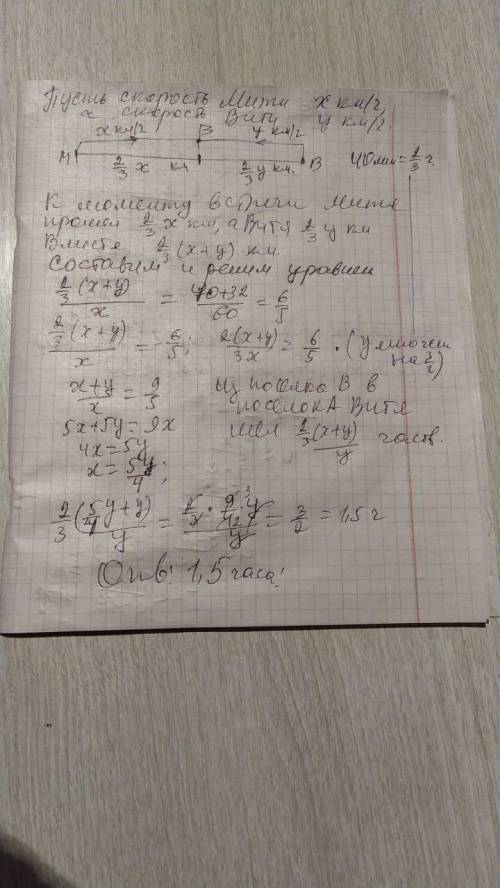 Пусть скорость Мити x км/ч,
а скорость Вити y км/г.
x км/г B y км/г
A 2/3 x км 2/3 y км. B 40 мин = 2/3 г.
К моменту встречи Митя
прошел 2/3 x км, а Витя 2/3 y км
Вместе 2/3 (x+y) км.
Составим и решим уравнен
2/3 (x+y)/x = 40+32/60 = 6/5
2/3 (x+y)/x = 6/5; 2(x+y)/3x = 6/5 · (умножим на 3/2)
x+y/x = 9/5 Из поселка B в
5x+5y=9x поселок A Витя
4x=5y шел 2/3(x+y)/y часов.
x=5y/4;
2/3 (5/4 y+y)/y = 3/2 = 1,5 г
Отв: 1,5 часа!